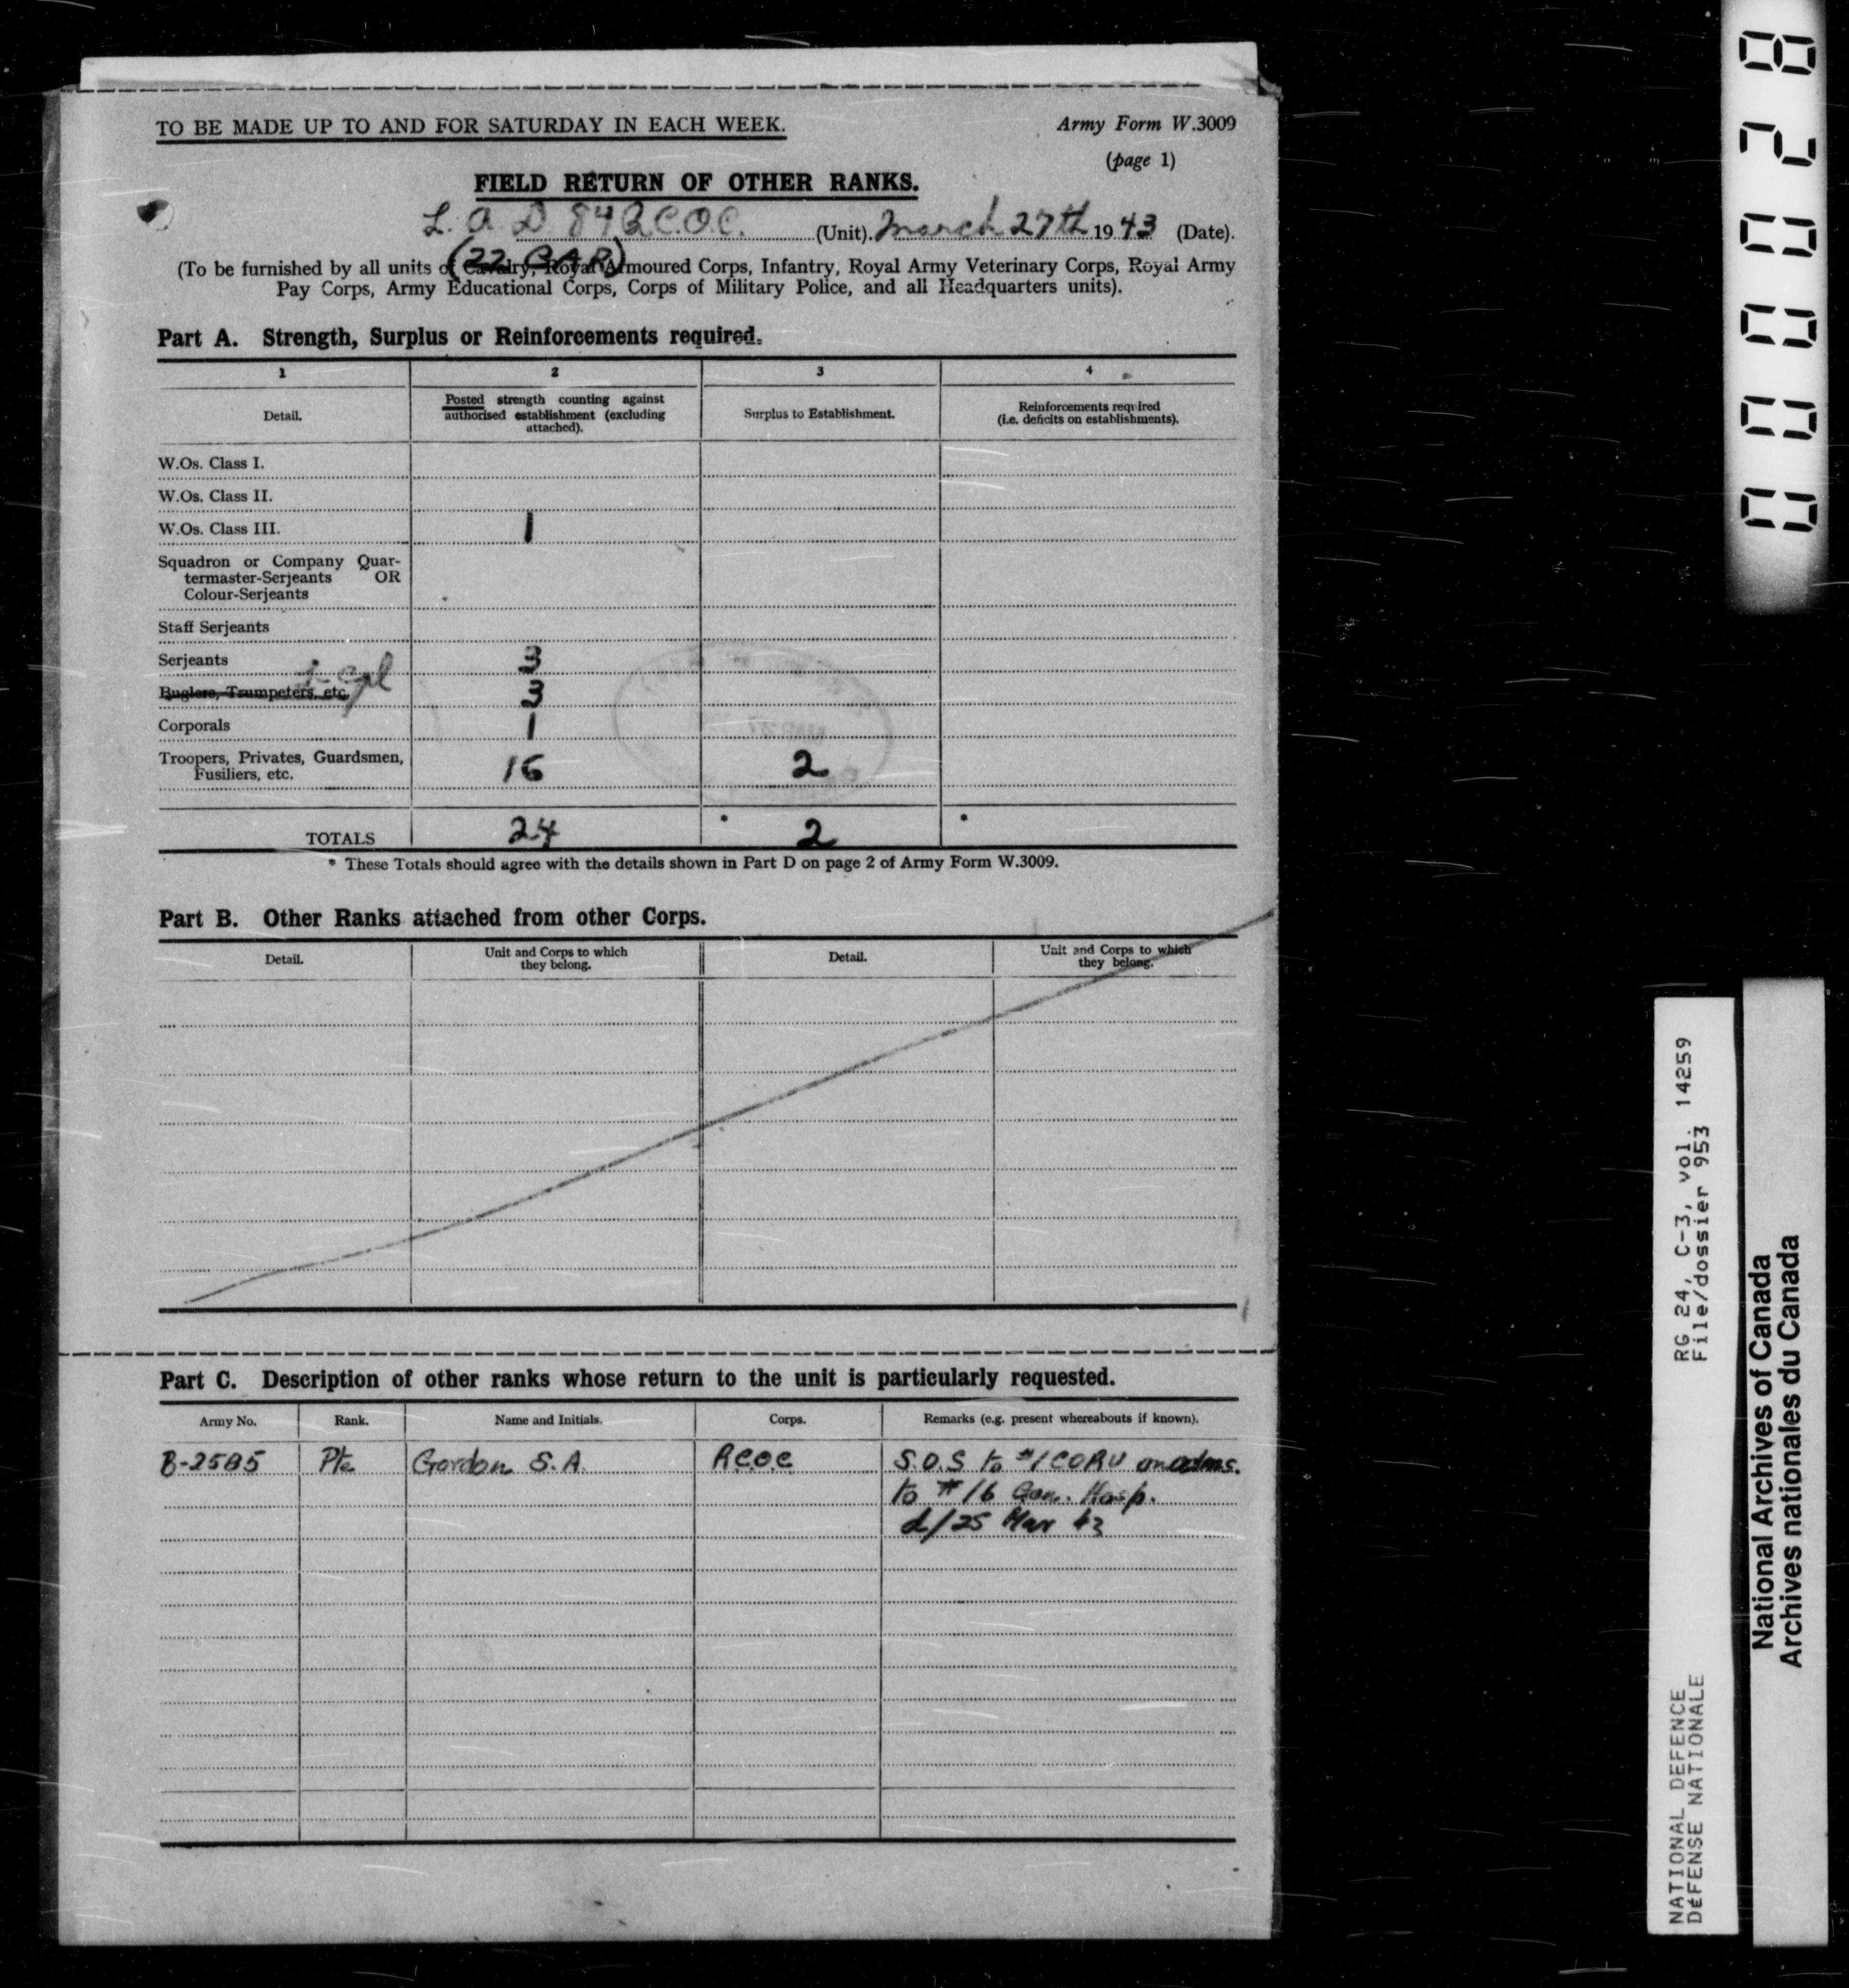 TO BE MADE UP TO AND FOR SATURDAY IN EACH WEEK.
Army Form W.3009
(page 1)
FIELD RETURN OF OTHER RANKS.
L. A D 84 R.C.O.C. (Unit). March 27th 1943 (Date).
(22 C A R)
(To be furnished by all units of Cavalry, Royal Armoured Corps, Infantry, Royal Army Veterinary Corps, Royal Army
Pay Corps, Army Educational Corps, Corps of Military Police, and all Headquarters units).
Part A. Strength, Surplus or Reinforcements required.
1 2 3 4
Detail. Posted strength counting against authorised establishment (excluding attached). Surplus to Establishment. Reinforcements required (i.e. deficits on establishments).
W.Os. Class I.
W.Os. Class II.
W.Os. Class III. 1
Squadron or Company Quar-
termaster-Serjeants OR
Colour-Serjeants
Staff Serjeants
Serjeants 3
Buglers, Trumpeters, etc. L-Cpl 3
Corporals 1
Troopers, Privates, Guardsmen, 16 2
Fusiliers, etc.
TOTALS 24 * 2 *
* These Totals should agree with the details shown in Part D on page 2 of Army Form W.3009.
Part B. Other Ranks attached from other Corps.
Detail. Unit and Corps to which they belong. Detail. Unit and Corps to which they belong.
Part C. Description of other ranks whose return to the unit is particularly requested.
Army No. Rank. Name and Initials. Corps. Remarks (e.g. present whereabouts if known).
B-2585 Pte Gordon S.A. R.C.O.C S.O.S to #1 CORU on adms.
to #16 Gen. Hosp.
d/25 Mar 43
00028
RG 24, C-3, vol. 14259
File/dossier 953
NATIONAL DEFENCE
DÉFENSE NATIONALE
National Archives of Canada
Archives nationales du Canada